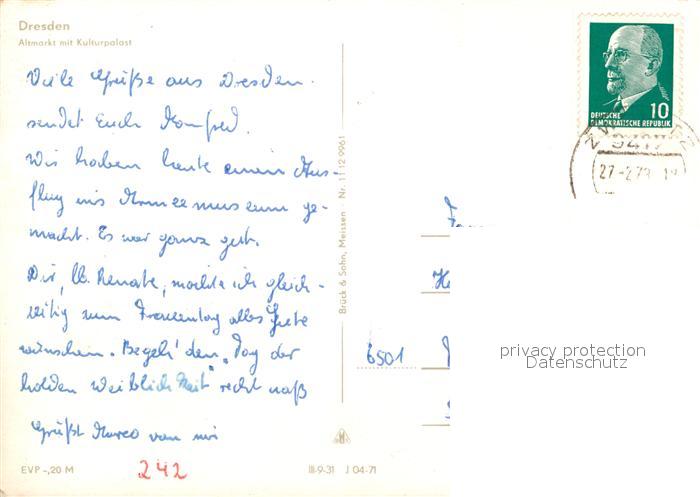 Dresden
Altmarkt mit Kulturpalast
Viele Grüße aus Dresden
sendet Euch Manfred.
Wir haben heute einen Aus-
flug ins Armeemuseum ge-
macht. Es war ganz gut.
Dir, lb. Renate, möchte ich gleich-
zeitig zum Frauentag alles Gute
wünschen. Begeh' den "Tag der
holden Weiblichkeit" recht naß
Grüßt Marco von mir
EVP -,20 M
242
III-9-31 J 04-71
Brück & Sohn, Meissen Nr. 11 12 9961
DEUTSCHE
DEMOKRATISCHE REPUBLIK
10
27-2.73
6501
privacy protection
Datenschutz